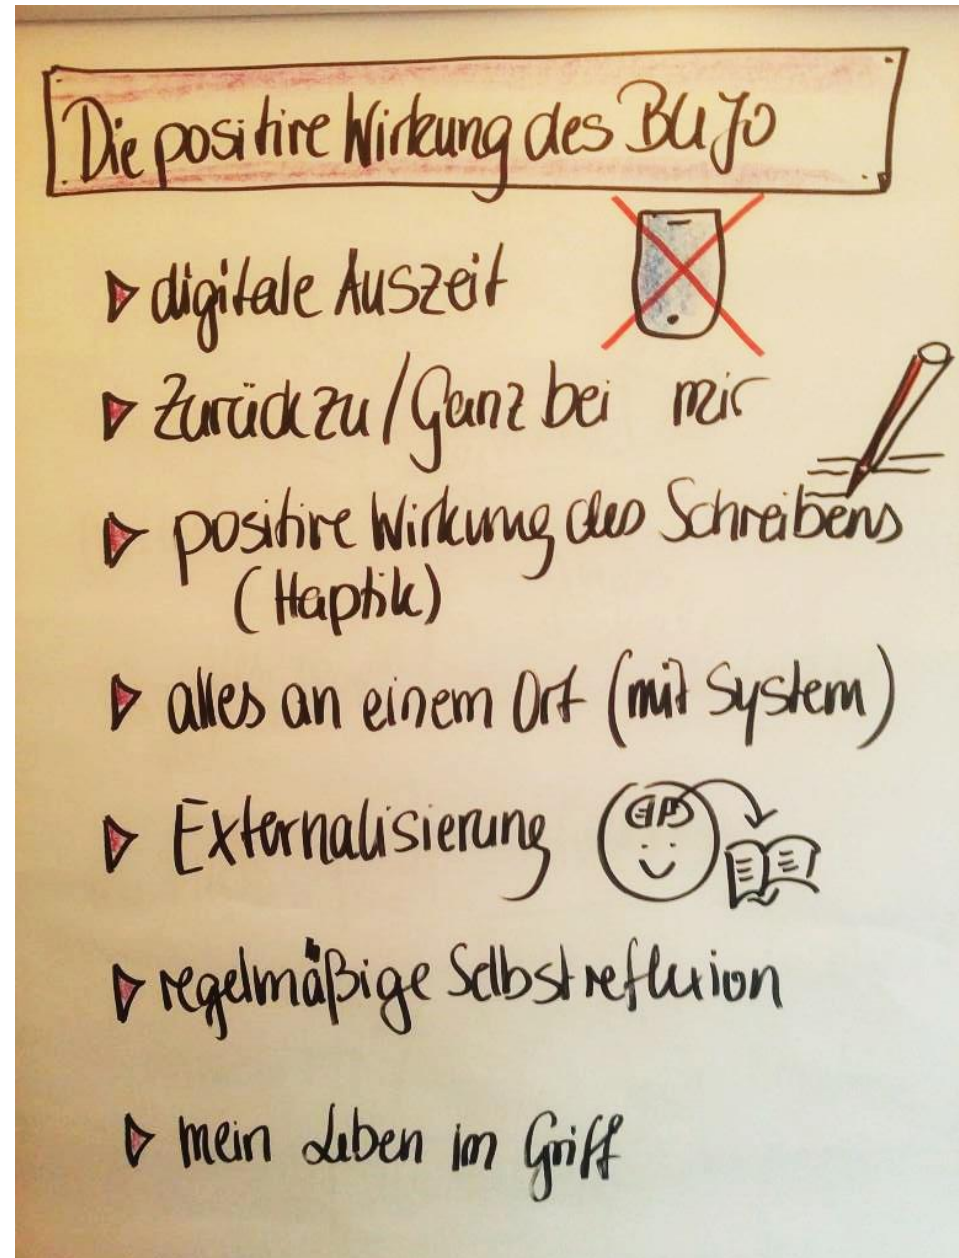 Die positive Wirkung des BuJo
digitale Auszeit
Zurück zu / Ganz bei mir
positive Wirkung des Schreibens
(Haptik)
alles an einem Ort (mit System)
Externalisierung
regelmäßige Selbstreflexion
mein Leben im Griff